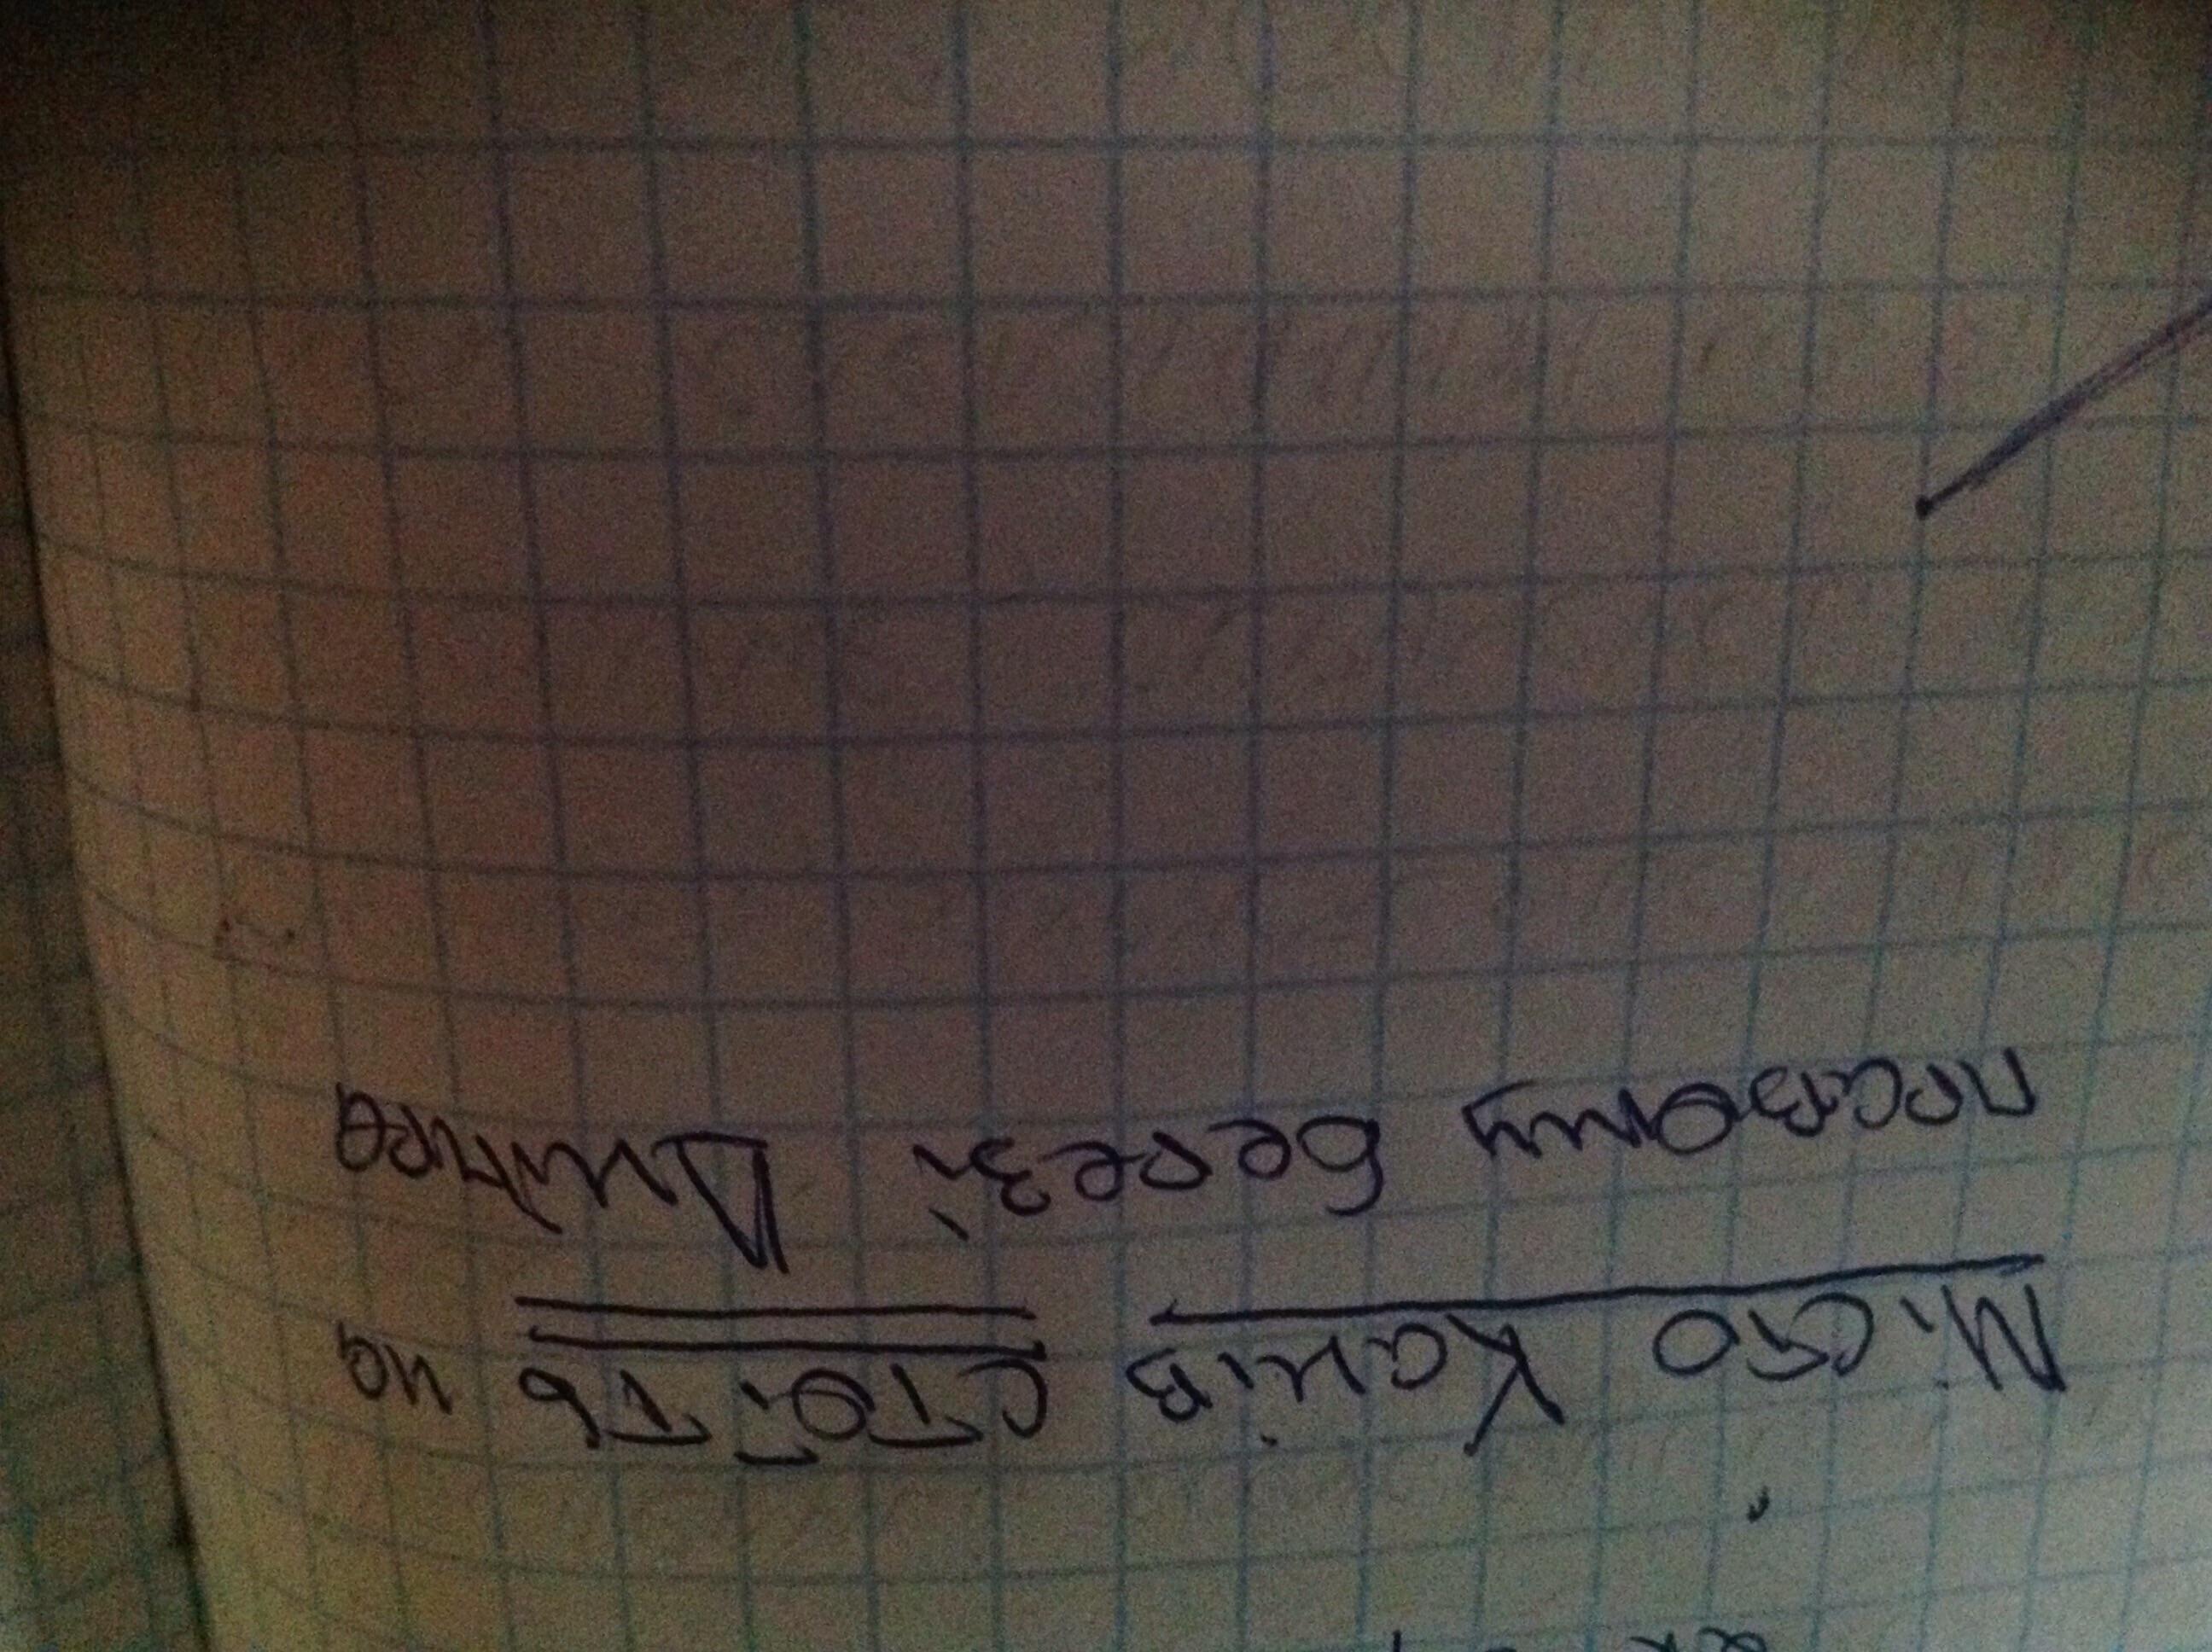 Місто Канів стоїть на
правому березі Дніпра